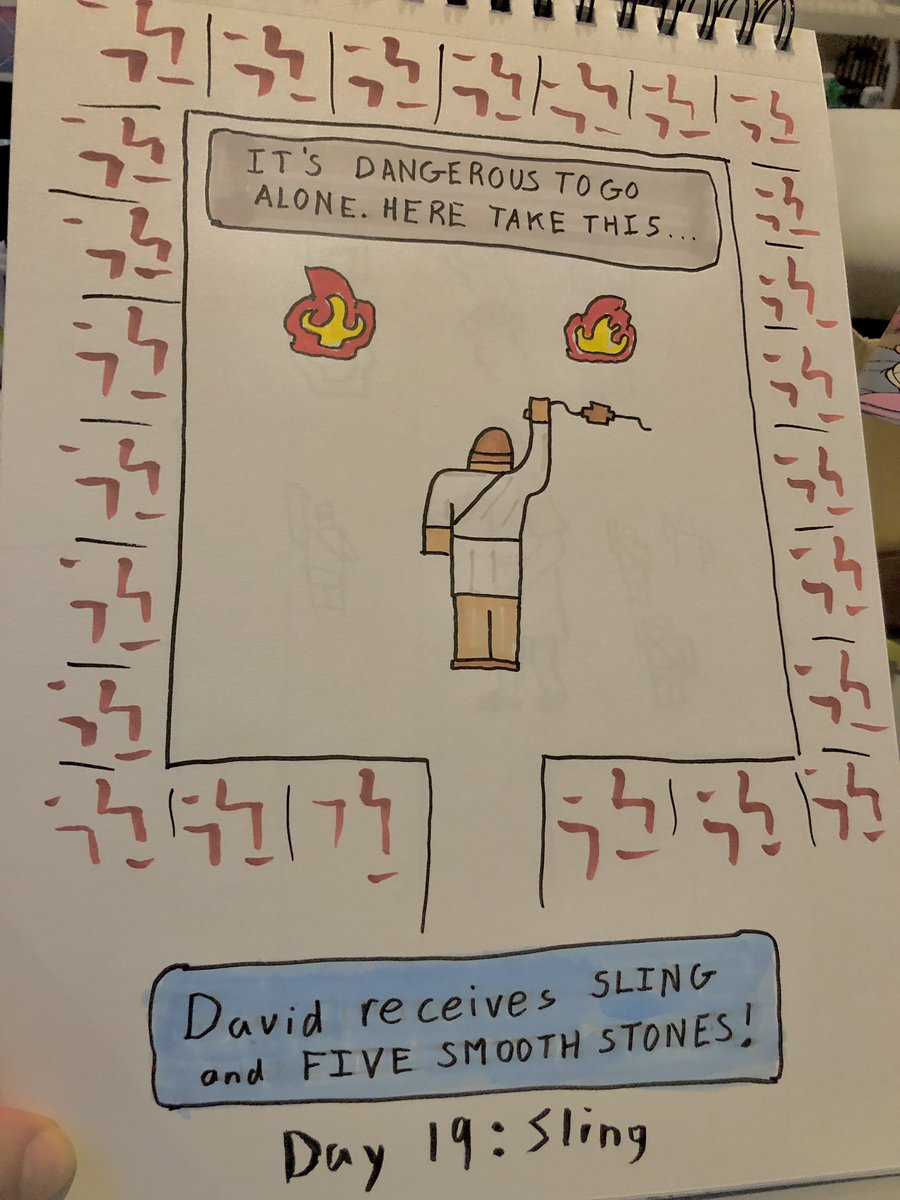 IT'S DANGEROUS TO GO
ALONE. HERE TAKE THIS...
David receives SLING
and FIVE SMOOTH STONES!
Day 19: Sling